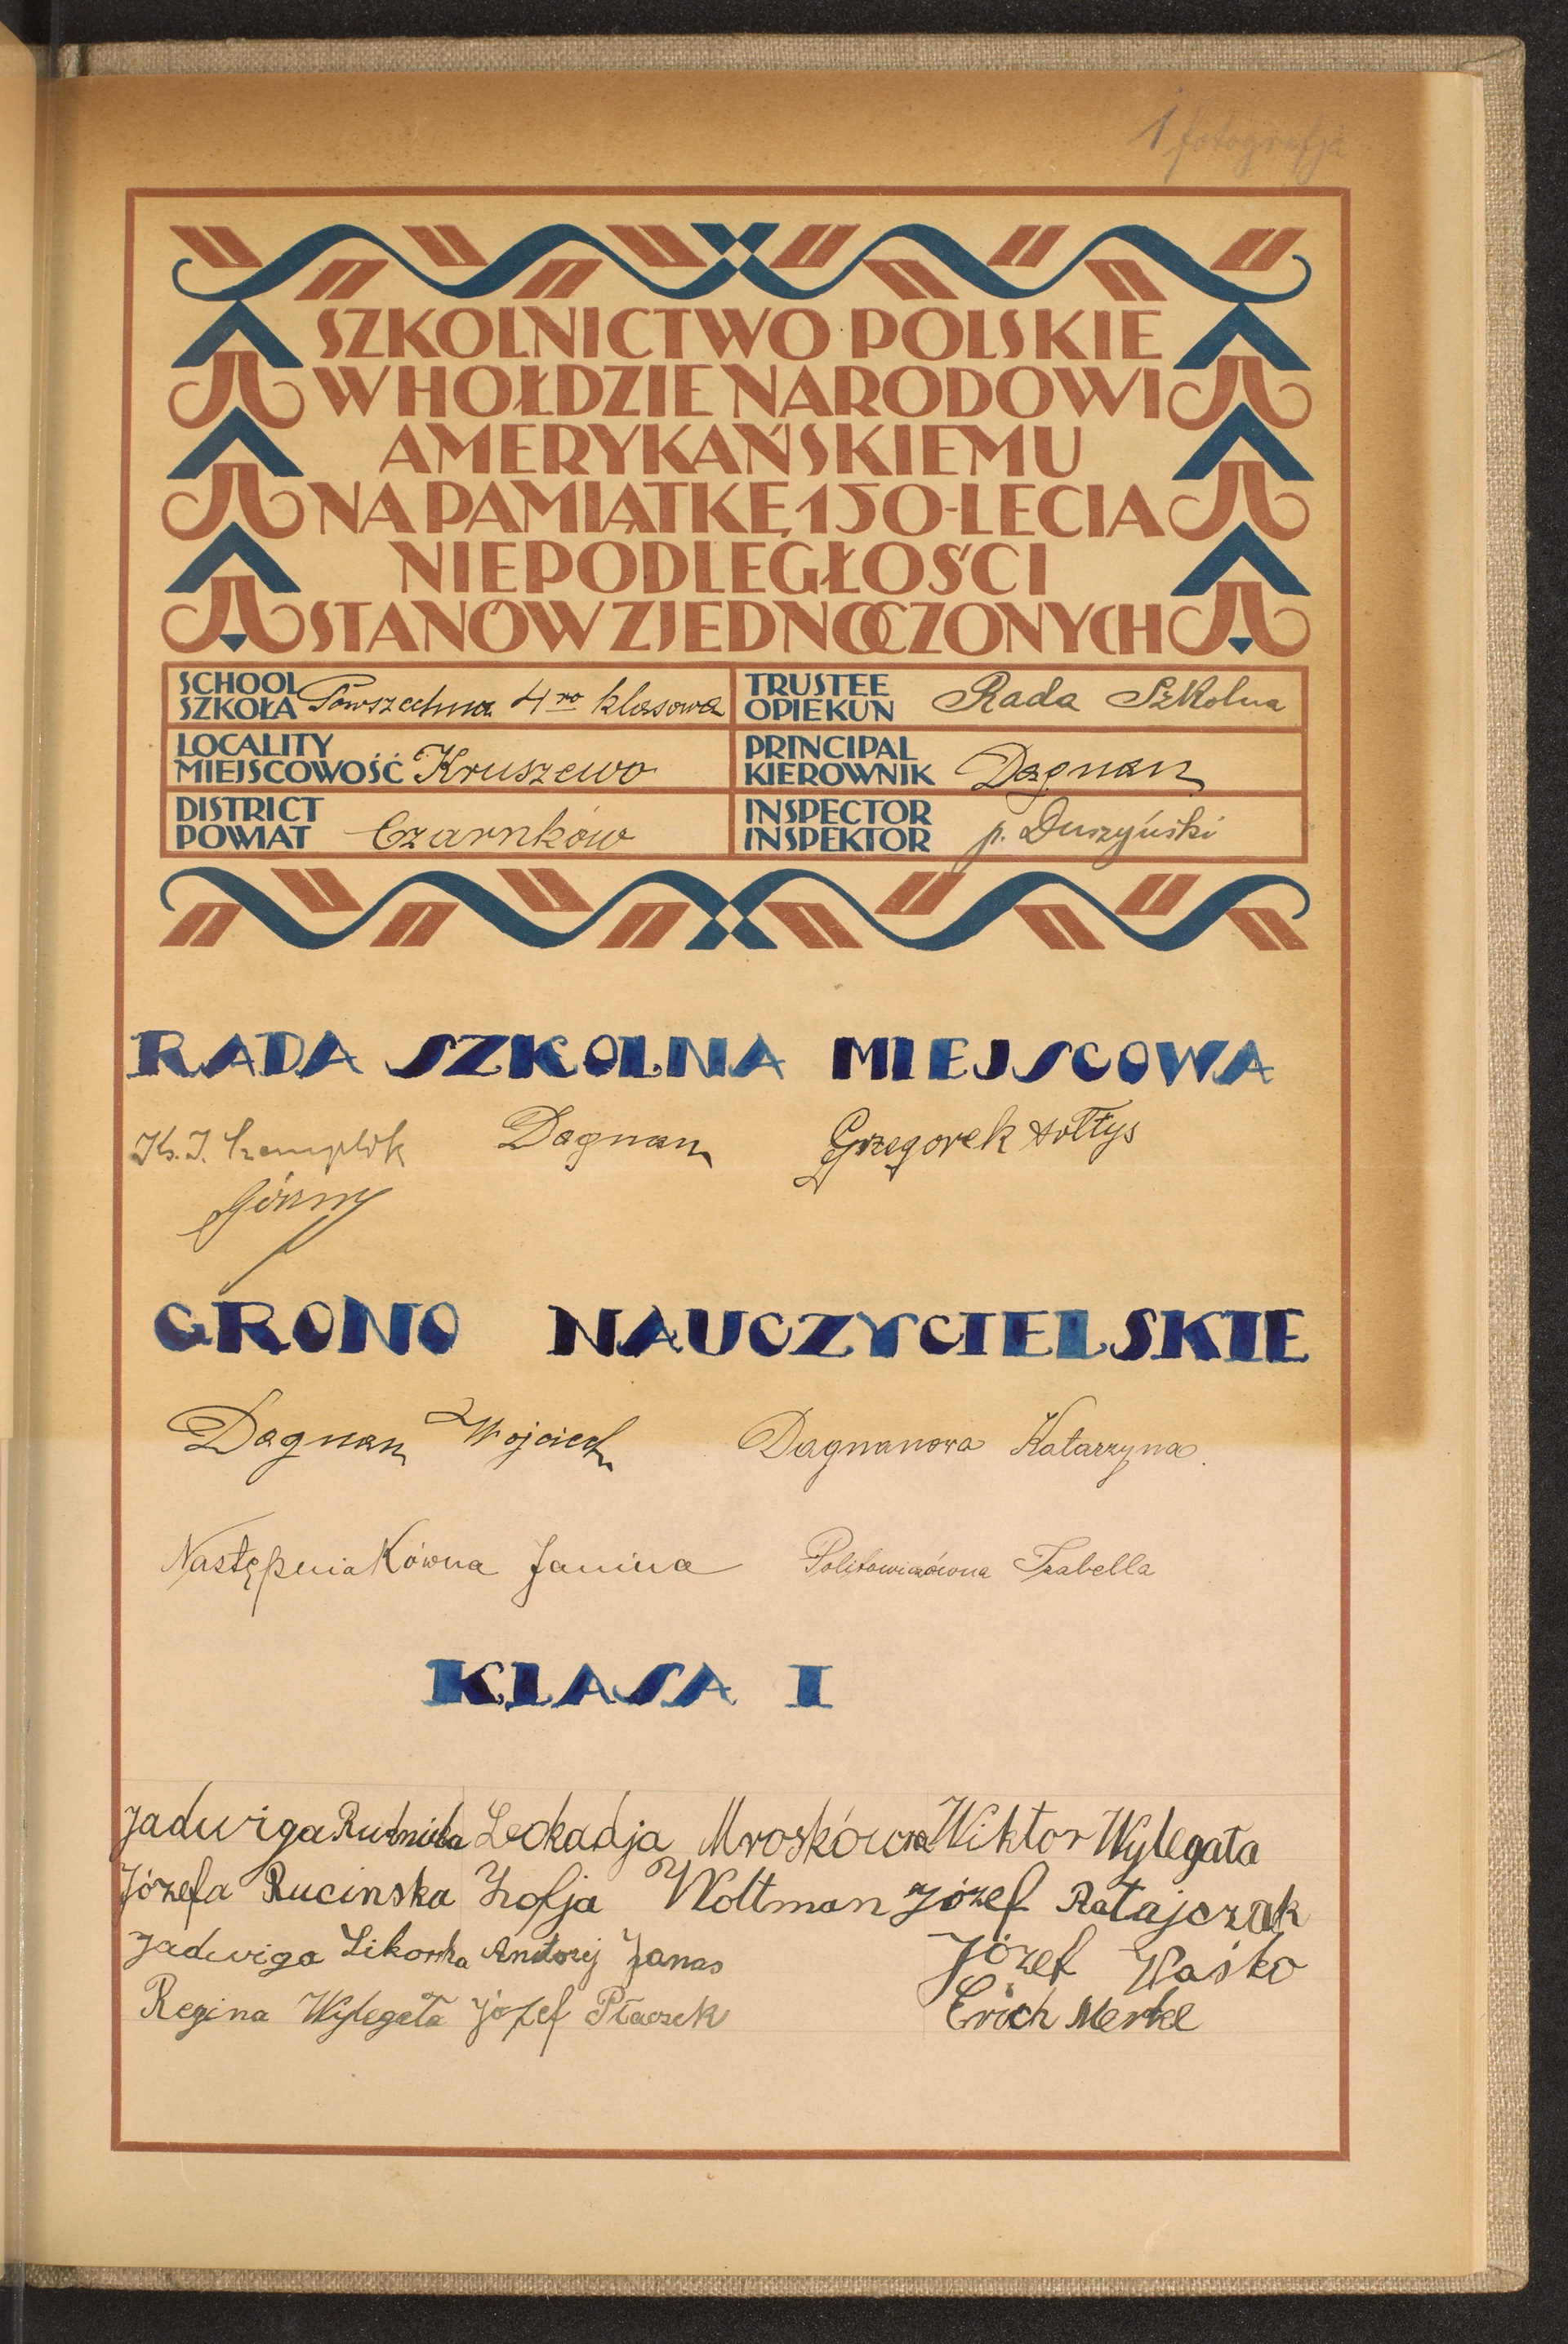 1 fotografja
SZKOLNICTWO POLSKIE
W HOŁDZIE NARODOWI
AMERYKAŃSKIEMU
NA PAMIĄTKĘ 150-LECIA
NIEPODLEGŁOŚCI
STANÓW ZJEDNOCZONYCH
SCHOOL
SZKOŁA Powszechna 4ro klasowa
TRUSTEE
OPIEKUN Rada Szkolna
LOCALITY
MIEJSCOWOŚĆ Kruszewo
PRINCIPAL
KIEROWNIK Dagnan
DISTRICT
POWIAT Czarnków
INSPECTOR
INSPEKTOR p. Duszyński
RADA SZKOLNA MIEJSCOWA
Ks. J. Dagnan Grzegorek sołtys
Górny
GRONO NAUCZYCIELSKIE
Dagnan Wojciech Dagnanowa Katarzyna.
Następniakówna Janina Politowiczówna Izabella
KLASA I
Jadwiga Leokadja Mroskówna Wiktor Wylegała
Józefa Rucinska Zofja Woltman Józef Ratajczak
Jadwiga Andrzej Janas Józef Waśko
Regina Wylegała Józef Płaczek Erich Merkel